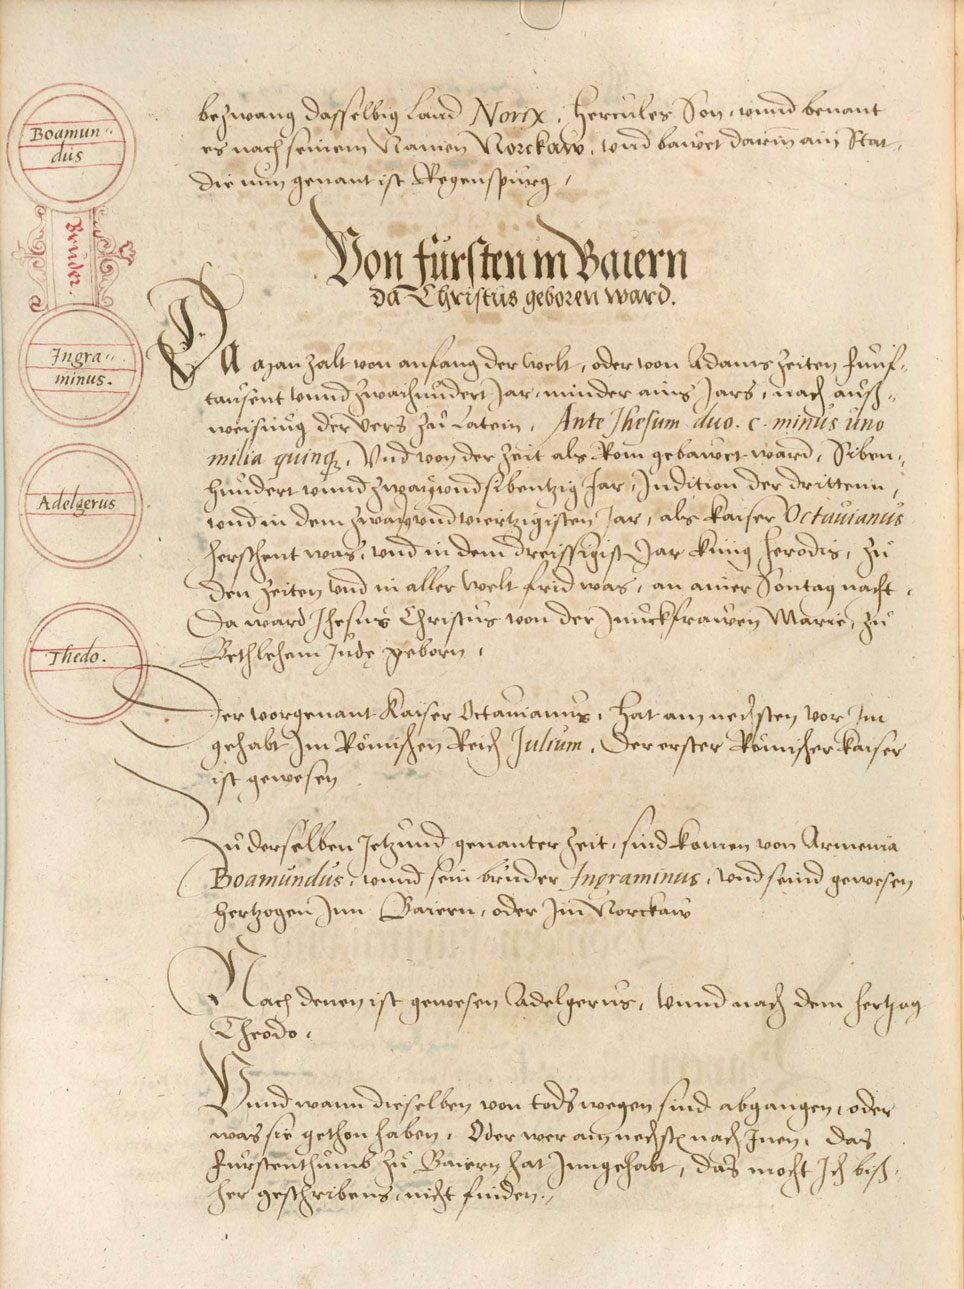 Boamun-
dus
Bruder.
Ingra-
minus.
Adelgerus
Thedo.
bezwang dasselbig Land Norix, Hercules Son, vnnd benant
es nach seinem Namen Norckaw, vnd bawet darinn ain Stat,
die nun genant ist Regenspurg,
Von fürsten in Baiern
da Christus geboren ward.
DA man zalt von anfang der welt, oder von Adams zeiten Fünf-
tausent vnnd zwayhundert Jar, minder ains Jars, nach auß-
weisung der vers zu Latein, Ante Jhesum duo. c. minus uno
milia quinq, Vnd von der zeit als Rom gebawet ward, Siben-
hundert vnnd zwayvndsibentzig Jar, Indition der drittenn,
vnd in dem zwayvndviertzigisten Jar, als kaiser Octauianus
herschent was, vnd in dem dreissigist Jar künig herodis, zu
den zeiten vnd in aller welt frid was, an ainer Sontag nacht,
Da ward Jhesus Christus von der Junckfrawen Marie, zu
Bethlehem Jude geborn,
Der vorgenant Kaiser Octauianus, hat am nechsten vor Im
gehabt Im Römischen Reich Julium, Der erster Römischer kaiser
ist gewesen
Zu derselben Jetzund genanter zeit, sind komen von Armenia
Boamundus, vnnd sein bruder Ingraminus, vnd seind gewesen
hertzogen Inn Baiern, oder Im Norckaw
Nach denen ist gewesen Adelgerus, vnnd nach dem hertzog
Theodo,
Vnnd wann dieselben von tods wegen sind abgangen, oder
was sie gethon haben, Oder wer am nechsten nach Inen, das
Fürstenthumb zu Baiern hat Inngehabt, das mocht Ich biß-
her geschribens nicht finden,